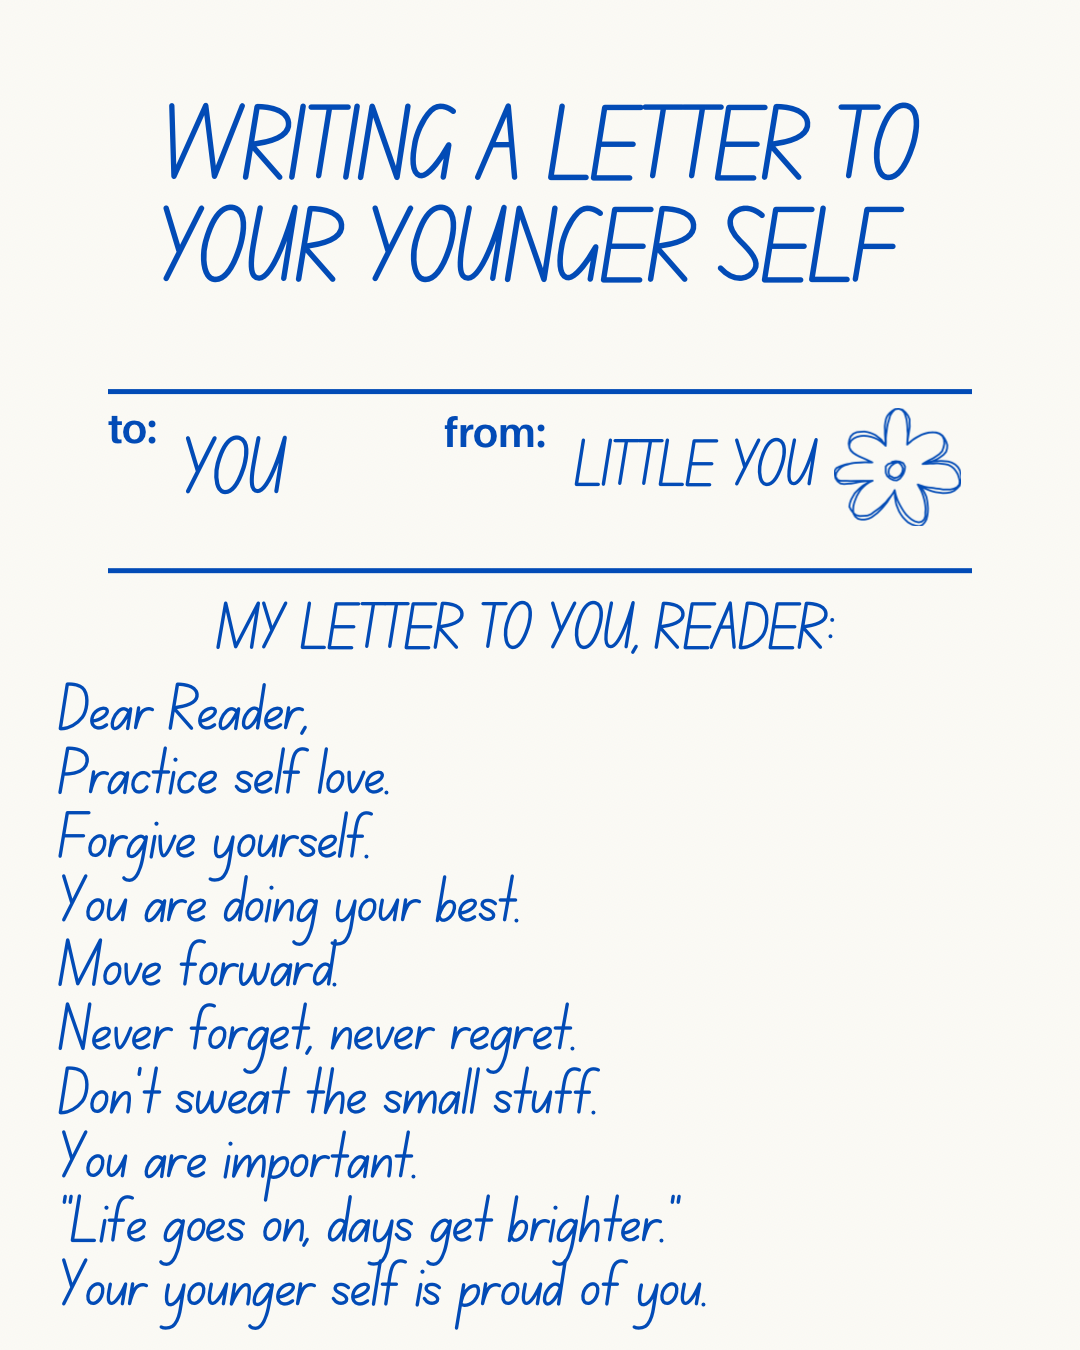 WRITING A LETTER TO
YOUR YOUNGER SELF
to: YOU from: LITTLE YOU
MY LETTER TO YOU, READER:
Dear Reader,
Practice self love.
Forgive yourself.
You are doing your best.
Move forward.
Never forget, never regret.
Don't sweat the small stuff.
You are important.
"Life goes on, days get brighter."
Your younger self is proud of you.